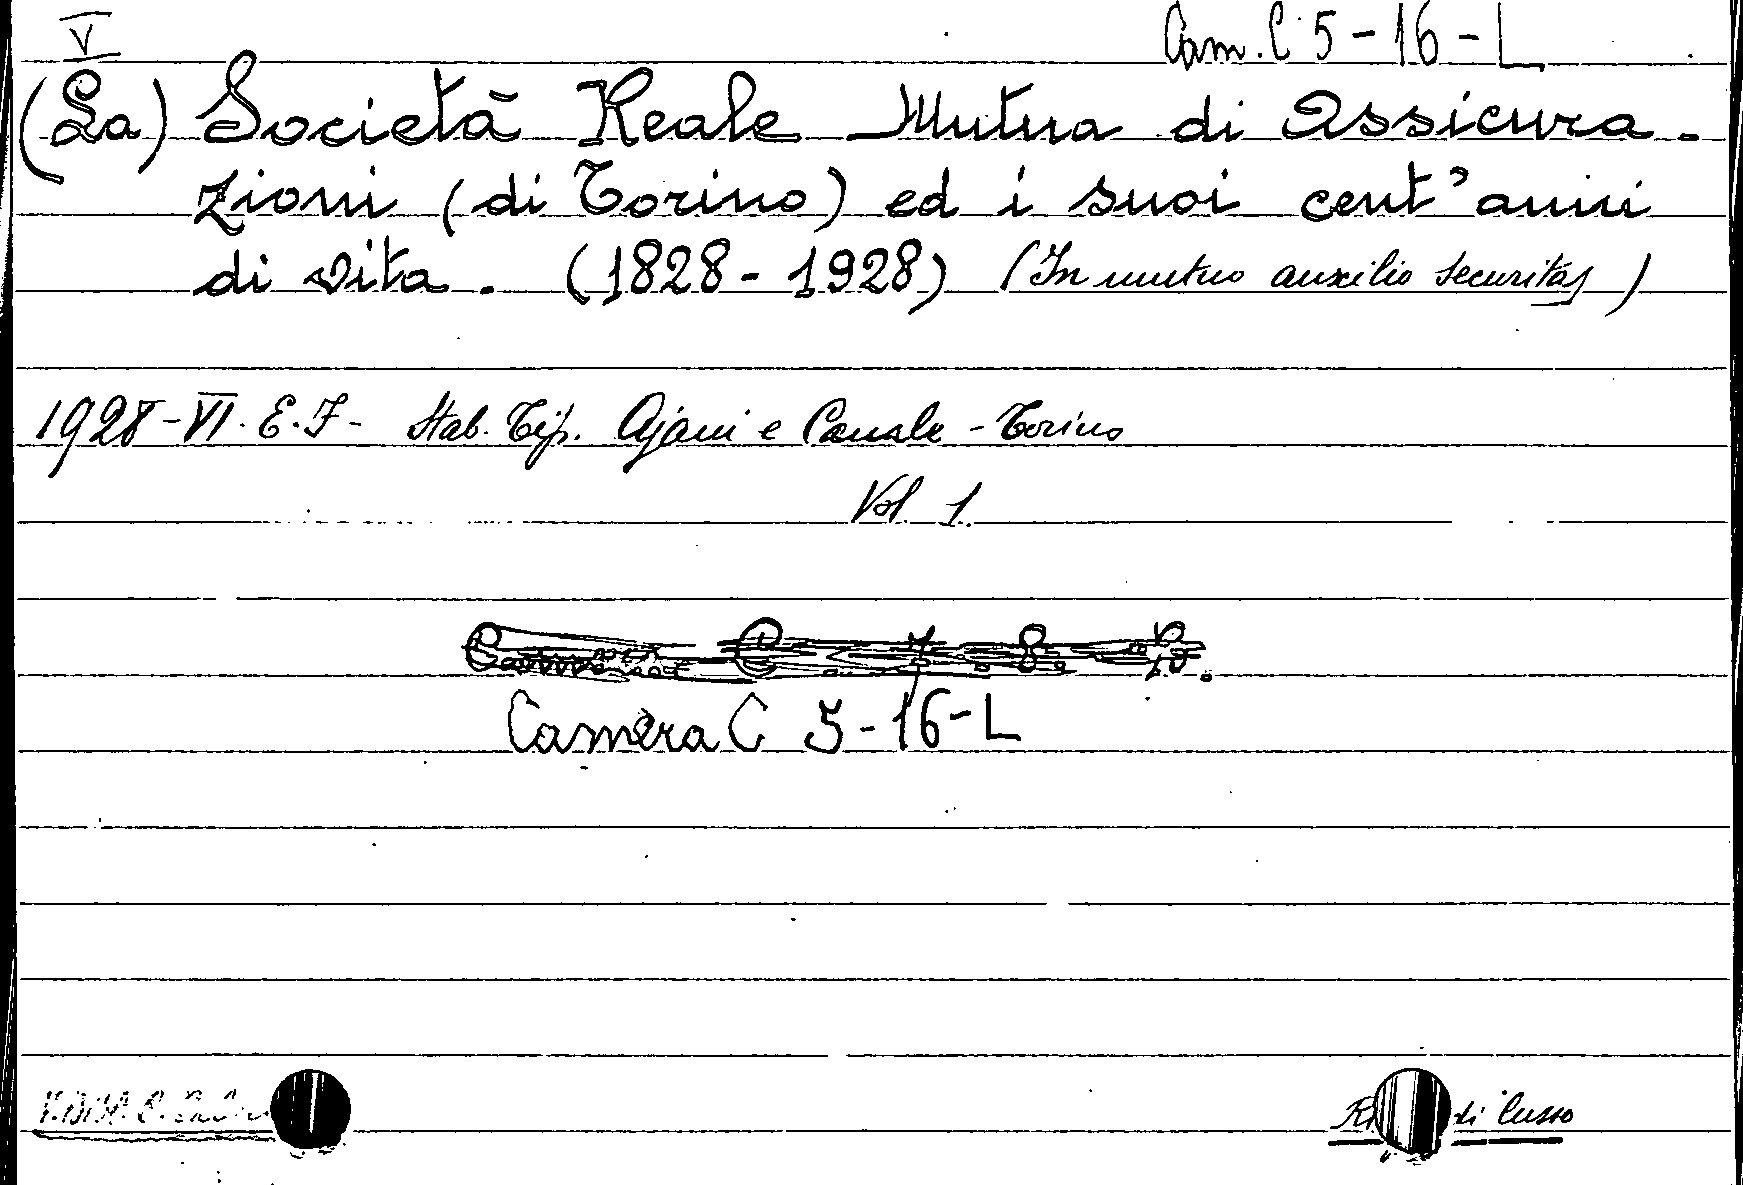 V
Cam. C 5-16-L
(La) Società Reale Mutua di Assicura-
zioni (di Torino) ed i suoi cent'anni
di vita. (1828-1928) (In mutuo auxilio securitas)
1928-VI. E.F- Stab. Tip. Ajani e Canale - Torino
Vol. 1.
Camera C 5-16-L
di lusso